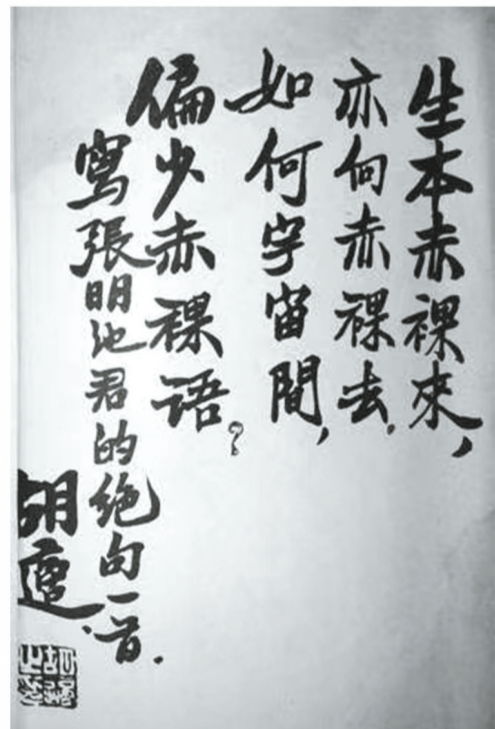 生本赤裸來，
亦向赤裸去．
如何宇宙間，
偏少赤裸語？
寫張明池君的绝句一首．
胡適．